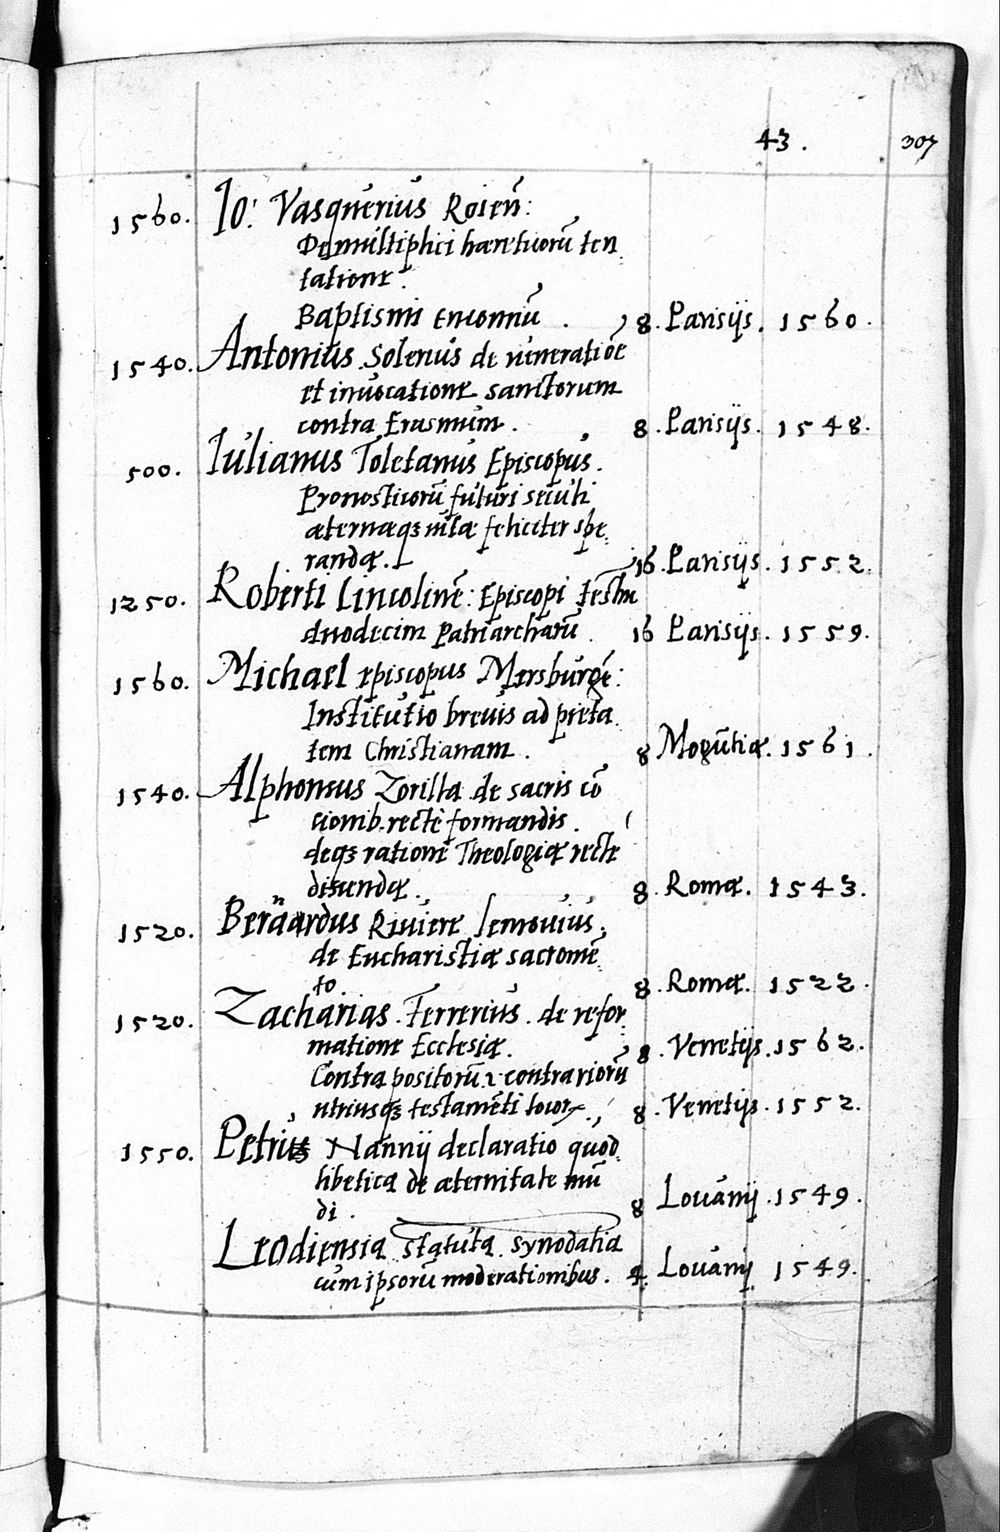 43. 307
1560. Io: Vasquerius Roieñ:
De multiplici hæreticorũ ten
tatione.
Baptismi Enconniũ . 8. Parisijs. 1560.
1540. Antonius Solerius de veneratiõe
et inuocatione sanctorum
contra Erasmum. 8. Parisijs. 1548.
500. Iulianus Toletanus Episcopus.
Pronosticorũ futuri seculi
æternæqꝫ vitæ feliciter spe,
randæ. 16. Parisijs. 1552.
1250. Roberti Lincolinẽ: Episcopi testm
duodecim Patriarcharũ . 16 Parisijs. 1559.
1560. Michael episcopus Mersburgẽ:
Institutio breuis ad pieta
tem Christianam . 8 Mogũtiæ. 1561.
1540. Alphonsus Zorilla de sacris cõ
cionib. rectè formandis.
deqꝫ ratione Theologiæ recte
discendæ. 8. Romæ. 1543.
1520. Berãardus Riuiere lemouius,
de Eucharistiæ sacromẽ
to. 8. Romæ. 1522.
1520. Zacharias Ferrerius de refor,
matione Ecclesiæ. 8. Venetijs. 1562.
Contra positorũ ⁊ contrariorũ
utriusqꝫ testamẽti locorꝝ. 8. Venetijs. 1552.
1550. Petrus Nannij declaratio quod
libetica de æternitate mũ
di. 8 Louanij. 1549.
Leodiensia statuta synodalia
cum ipsorũ moderationibus. 4. Louanij 1549.